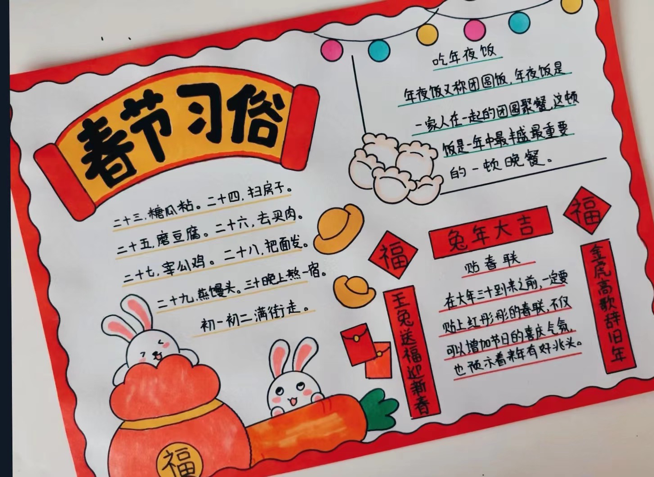 春节习俗
二十三.糖瓜粘。二十四.扫房子。
二十五.磨豆腐。二十六.去买肉。
二十七.宰公鸡。二十八.把面发。
二十九.蒸馒头。三十晚上熬一宿。
初一初二满街走。
福
吃年夜饭
年夜饭又称团圆饭.年夜饭是
一家人在一起的团圆聚餐.这顿
饭是一年中最丰盛最重要
的一顿晚餐。
福
兔年大吉
福
贴春联
在大年三十到来之前,一定要
贴上红彤彤的春联.不仅
可以增加节日的喜庆气氛.
也预示着来年有好兆头。
玉兔送福迎新春
金虎高歌辞旧年